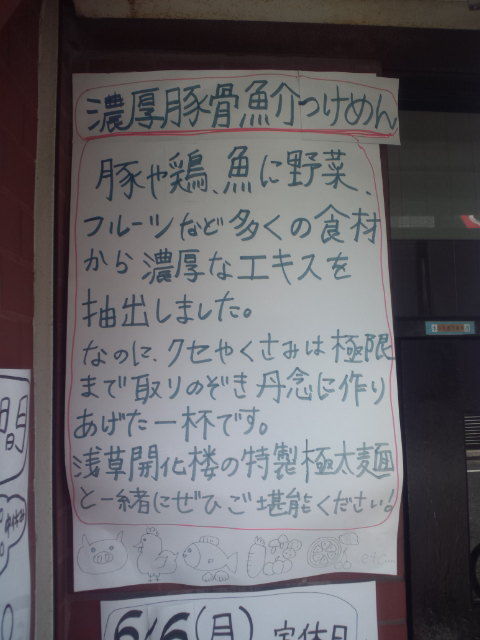 濃厚豚骨魚介つけめん
豚や鶏、魚に野菜、
フルーツなど多くの食材
から濃厚なエキスを
抽出しました。
なのに、クセやくさみは極限
まで取りのぞき丹念に作り
あげた一杯です。
浅草開化楼の特製極太麺
と一緒にぜひご堪能ください!
etc...
6/6(月) 定休日
間